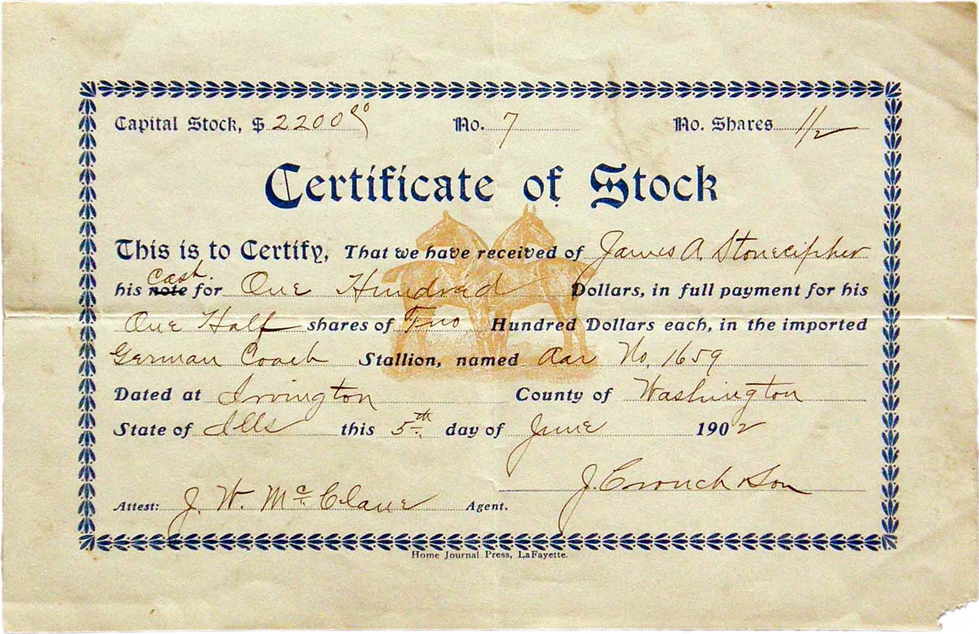 Capital Stock, $ 2200 00 No. 7 No. Shares 1/2
Certificate of Stock
This is to Certify, That we have received of James A. Stonecipher
Cash
his note for One Hundred Dollars, in full payment for his
One Half shares of Two Hundred Dollars each, in the imported
German Coach Stallion, named Aar No. 1659
Dated at Irvington County of Washington
State of Ills this 5th day of June 1902
J. Crouch & Son
Attest: J. W. McClane Agent.
Home Journal Press, LaFayette.